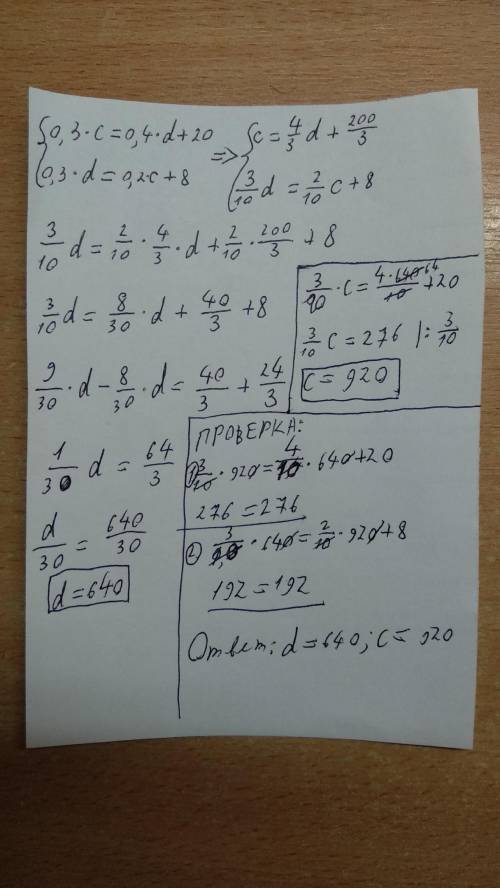 {0,3·c=0,4·d+20 => {c=4/3 d+200/3
{0,3·d=0,2·c+8 {3/10 d=2/10 c+8
3/10 d=2/10·4/3·d+2/10·200/3+8
3/10 d=8/30·d+40/3+8
9/30·d-8/30·d=40/3+24/3
1/30 d=64/3
d/30=640/30
d=640
3/10·c=4·640/10+20
64
3/10 c=276 |:3/10
c=920
ПРОВЕРКА:
1) 3/10·920=4/10·640+20
276=276
2) 3/10·640=2/10·920+8
192=192
Ответ: d=640; c=920